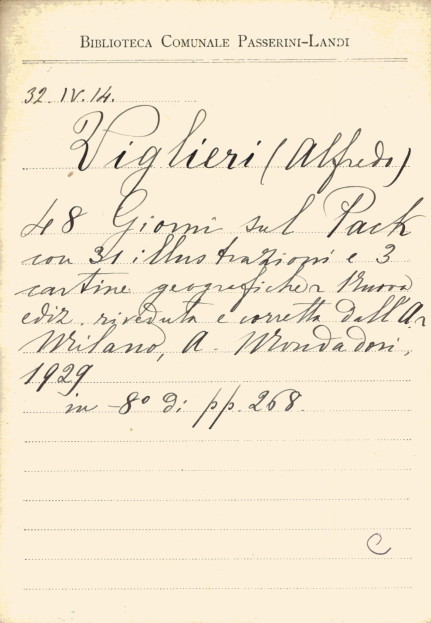 BIBLIOTECA COMUNALE PASSERINI-LANDI
32.IV.14.
Viglieri (Alfredo)
48 Giorni sul Pack
con 31 illustrazioni e 3
cartine geografiche Nuova
ediz. riveduta e corretta dall'A.
Milano, A. Mondadori,
1929
in -8º di pp. 268.
C